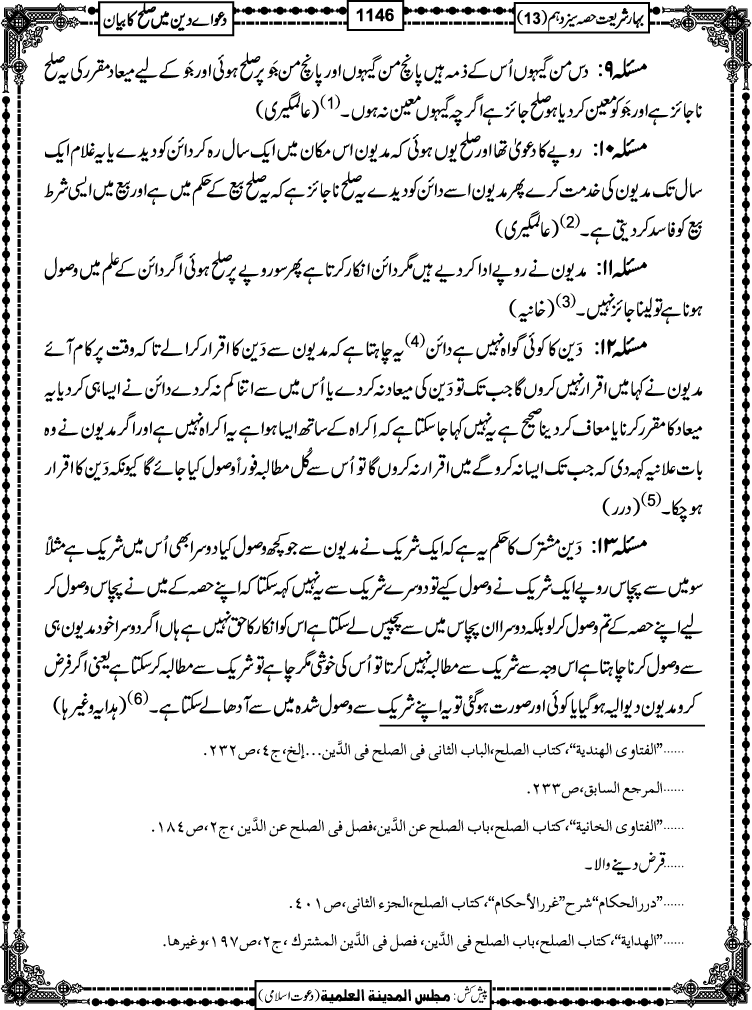 بہارِ شریعت حصہ سیزدہم (13)
1146
دعوائے دین میں صلح کا بیان
مسئلہ ۹: دس من گیہوں اُس کے ذمہ ہیں پانچ من گیہوں اور پانچ من جَو پر صلح ہوئی اور جَو کے لیے میعاد مقرر کی یہ صلح
ناجائز ہے اور جَو کو معین کر دیا ہو صلح جائز ہے اگرچہ گیہوں معین نہ ہوں۔(1) (عالمگیری)
مسئلہ ۱۰: روپے کا دعویٰ تھا اور صلح یوں ہوئی کہ مدیون اس مکان میں ایک سال رہ کر دائن کو دیدے یا یہ غلام ایک
سال تک مدیون کی خدمت کرے پھر مدیون اسے دائن کو دیدے یہ صلح ناجائز ہے کہ یہ صلح بیع کے حکم میں ہے اور بیع میں ایسی شرط
بیع کو فاسد کر دیتی ہے۔(2) (عالمگیری)
مسئلہ ۱۱: مدیون نے روپے ادا کر دیے ہیں مگر دائن انکار کرتا ہے پھر سو روپے پر صلح ہوئی اگر دائن کے علم میں وصول
ہونا ہے تو لینا جائز نہیں۔(3) (خانیہ)
مسئلہ ۱۲: دَین کا کوئی گواہ نہیں ہے دائن(4) یہ چاہتا ہے کہ مدیون سے دَین کا اقرار کرالے تاکہ وقت پر کام آئے
مدیون نے کہا میں اقرار نہیں کروں گا جب تک تو دَین کی میعاد نہ کر دے یا اُس میں سے اتنا کم نہ کر دے دائن نے ایسا ہی کر دیا یہ
میعاد کا مقرر کرنا یا معاف کر دینا صحیح ہے یہ نہیں کہا جا سکتا ہے کہ اِکراہ کے ساتھ ایسا ہوا ہے یہ اکراہ نہیں ہے اور اگر مدیون نے وہ
بات علانیہ کہہ دی کہ جب تک ایسا نہ کرو گے میں اقرار نہ کروں گا تو اُس سے کُل مطالبہ فوراً وصول کیا جائے گا کیونکہ دَین کا اقرار
ہو چکا۔(5) (درر)
مسئلہ ۱۳: دَین مشترک کا حکم یہ ہے کہ ایک شریک نے مدیون سے جو کچھ وصول کیا دوسرا بھی اُس میں شریک ہے مثلاً
سو میں سے پچاس روپے ایک شریک نے وصول کیے تو دوسرے شریک سے یہ نہیں کہہ سکتا کہ اپنے حصہ کے میں نے پچاس وصول کر
لیے اپنے حصہ کے تم وصول کر لو بلکہ دوسرا ان پچاس میں سے پچیس لے سکتا ہے اس کو انکار کا حق نہیں ہے ہاں اگر دوسرا خود مدیون ہی
سے وصول کرنا چاہتا ہے اس وجہ سے شریک سے مطالبہ نہیں کرتا تو اُس کی خوشی مگر چاہے تو شریک سے مطالبہ کر سکتا ہے یعنی اگر فرض
کرو مدیون دیوالیہ ہو گیا یا کوئی اور صورت ہو گئی تو یہ اپنے شریک سے وصول شدہ میں سے آدھا لے سکتا ہے۔(6) (ہدایہ وغیرہا)
......”الفتاوى الهندية“، كتاب الصلح،الباب الثانى فى الصلح فى الدَّين...إلخ،ج٤،ص٢٣٢.
......المرجع السابق،ص٢٣٣.
......”الفتاوى الخانية“، كتاب الصلح،باب الصلح عن الدَّين،فصل فى الصلح عن الدَّين ،ج٢،ص١٨٤.
......قرض دینے والا۔
......”دررالحكام“شرح”غررالأحكام“، كتاب الصلح،الجزء الثانى،ص٤٠١.
......”الهداية“، كتاب الصلح،باب الصلح فى الدَّين، فصل فى الدَّين المشترك ،ج٢،ص١٩٧،وغيرها.
پیش کش: مجلس المدینة العلمیة (دعوت اسلامی)